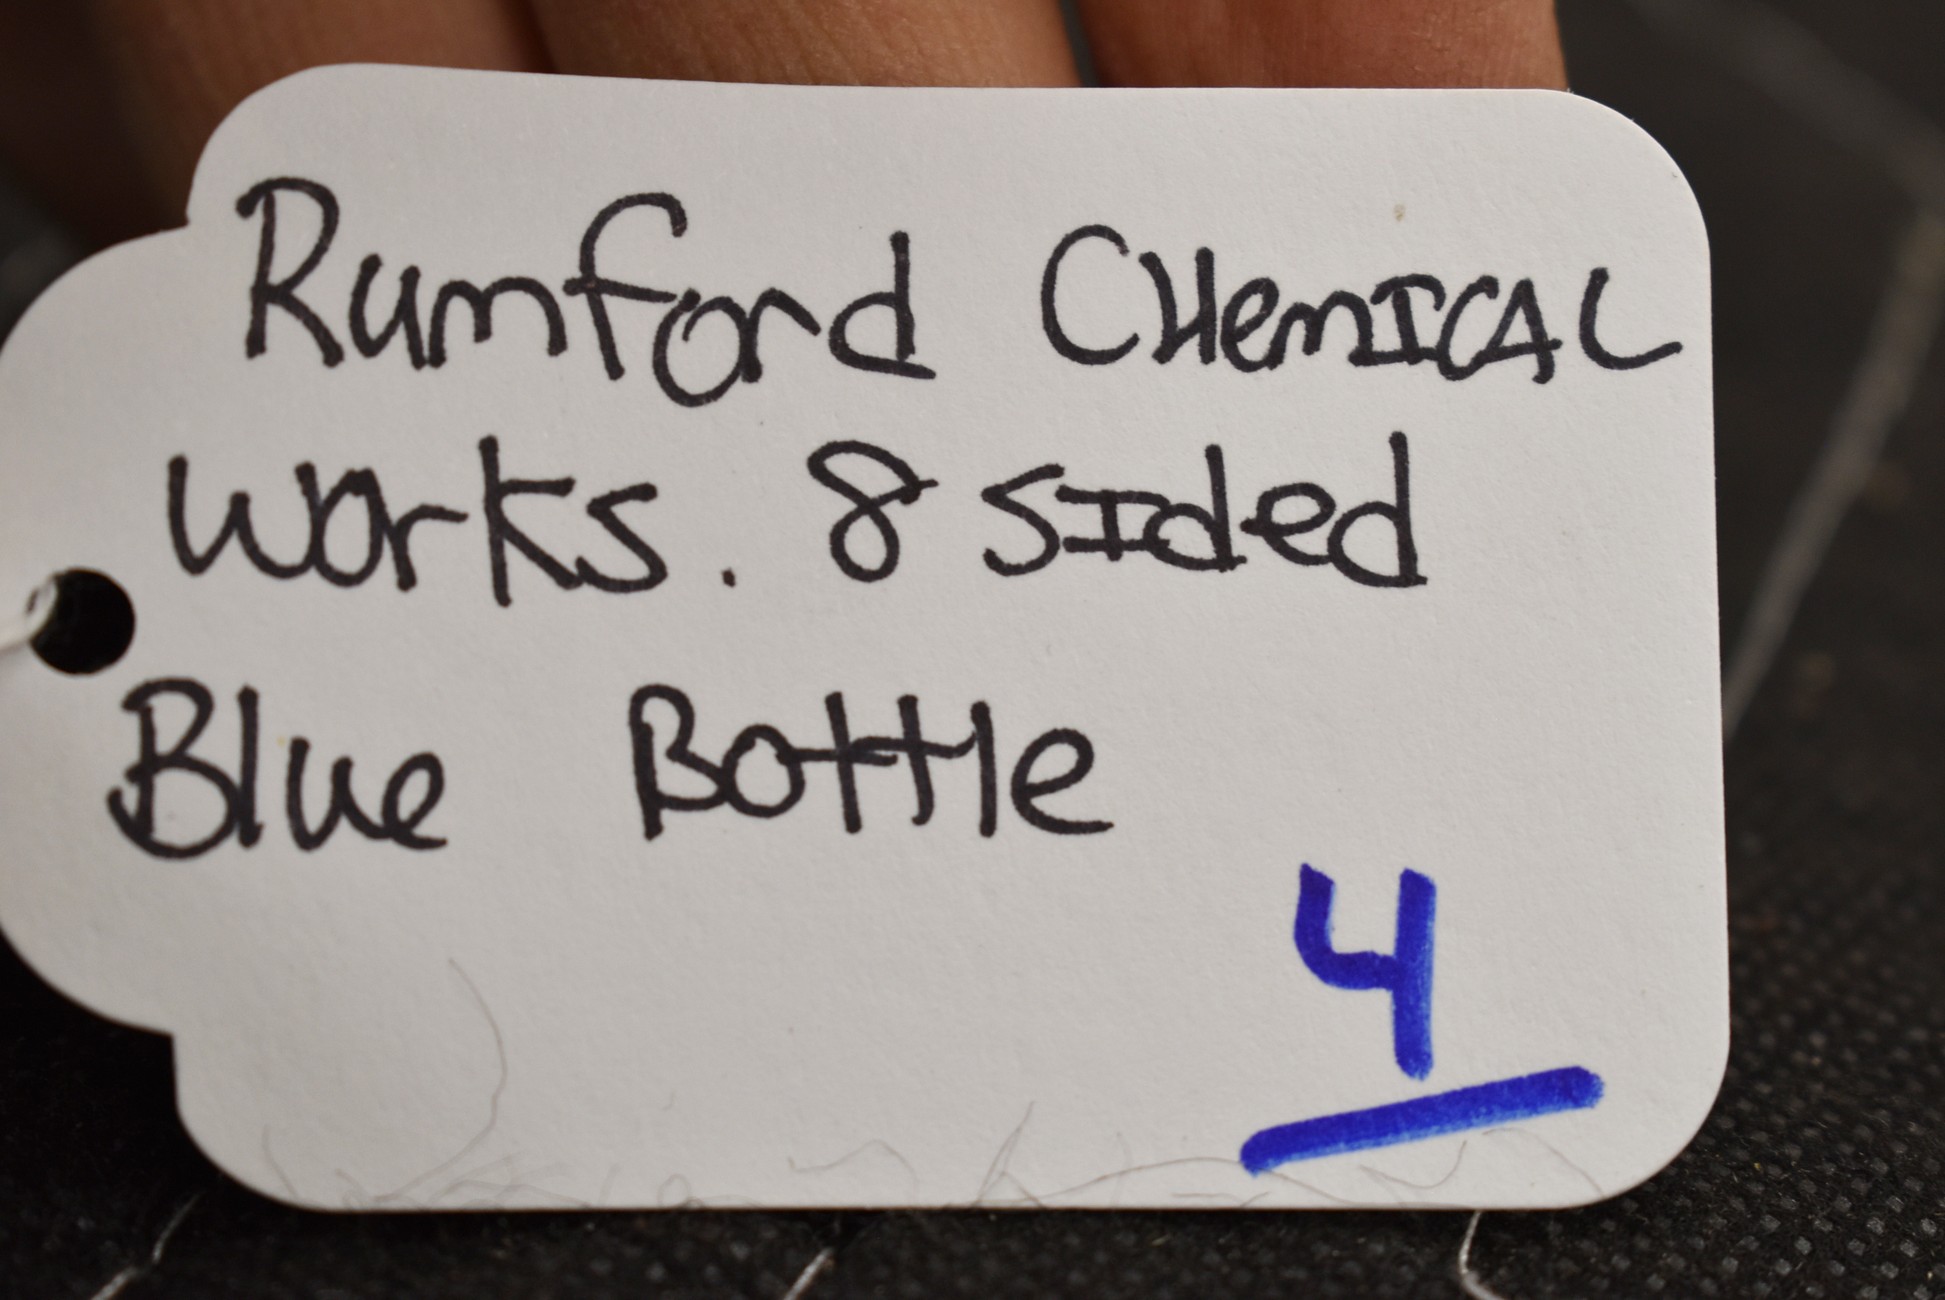 Rumford CHemICAL
works. 8 sIded
Blue Bottle
4